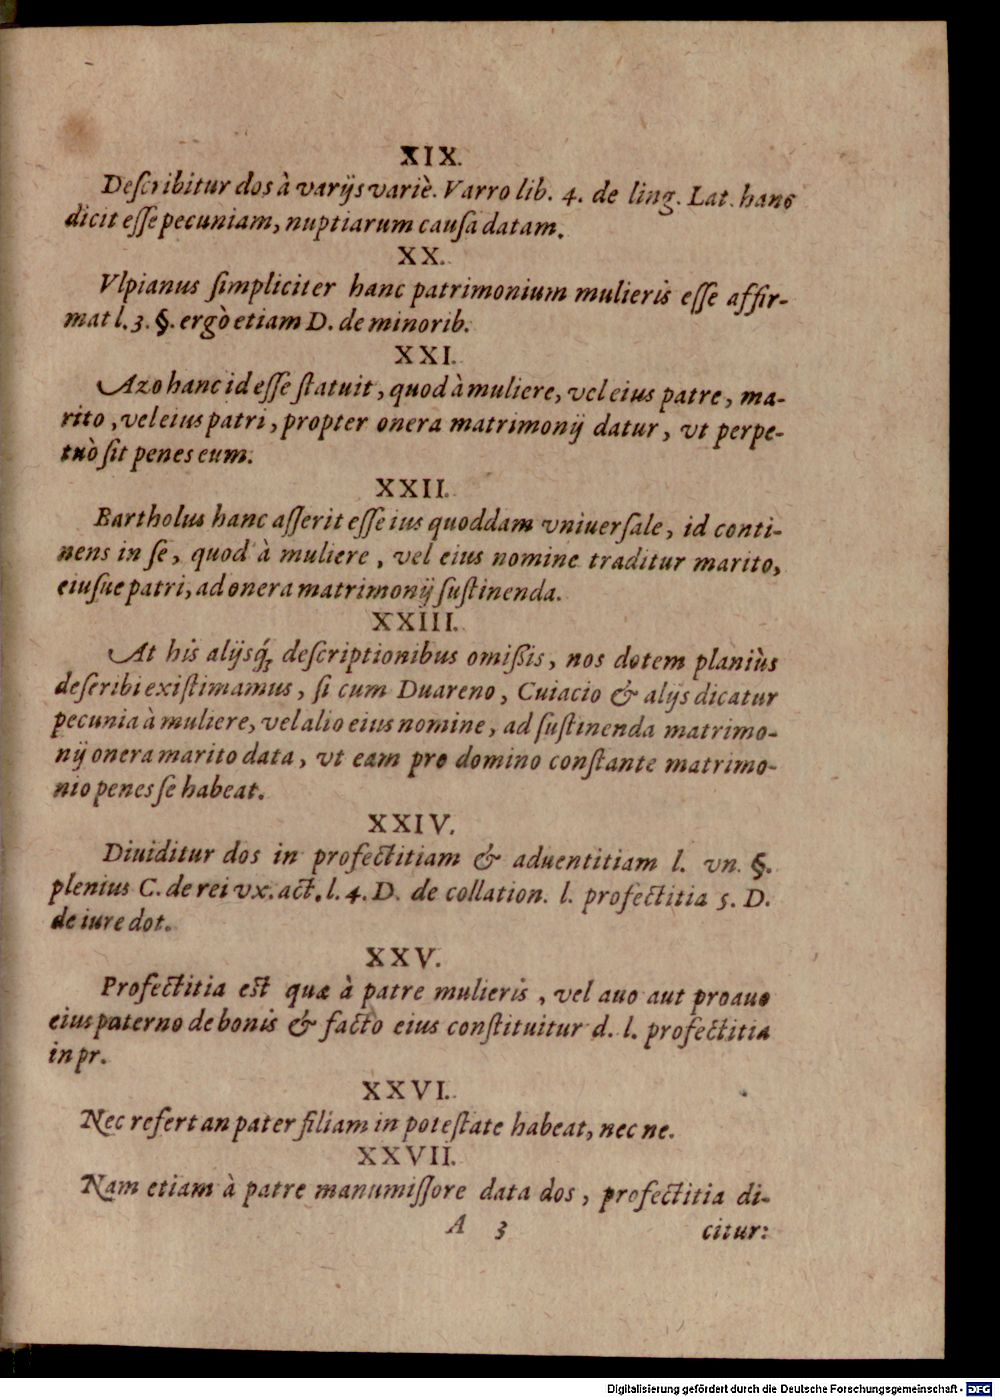 XIX.
Deſcribitur dos à varijs variè. Varro lib. 4. de ling. Lat. hanc
dicit eſſe pecuniam, nuptiarum cauſa datam.
XX.
Vlpianus ſimpliciter hanc patrimonium mulieris eſſe affir-
mat l. 3. §. ergò etiam D. de minorib.
XXI.
Azo hanc id eſſe ſtatuit, quod à muliere, vel eius patre, ma-
rito, vel eius patri, propter onera matrimonij datur, vt perpe-
tuò ſit penes eum.
XXII.
Bartholus hanc aſſerit eſſe ius quoddam vniuerſale, id conti-
nens in ſe, quod à muliere, vel eius nomine traditur marito,
eiuſue patri, ad onera matrimonij ſuſtinenda.
XXIII.
At his alijsq́; deſcriptionibus omißis, nos dotem planiùs
deſcribi exiſtimamus, ſi cum Duareno, Cuiacio & alijs dicatur
pecunia à muliere, vel alio eius nomine, ad ſuſtinenda matrimo-
nij onera marito data, vt eam pro domino conſtante matrimo-
nio penes ſe habeat.
XXIV.
Diuiditur dos in profectitiam & aduentitiam l. vn. §.
plenius C. de rei vx. act. l. 4. D. de collation. l. profectitia 5. D.
de iure dot.
XXV.
Profectitia est quæ à patre mulieris, vel auo aut proauo
eius paterno de bonis & facto eius conſtituitur d. l. profectitia
in pr.
XXVI.
Nec refert an pater filiam in poteſtate habeat, nec ne.
XXVII.
Nam etiam à patre manumiſſore data dos, profectitia di-
A 3 citur:
Digitalisierung gefördert durch die Deutsche Forschungsgemeinschaft - DFG